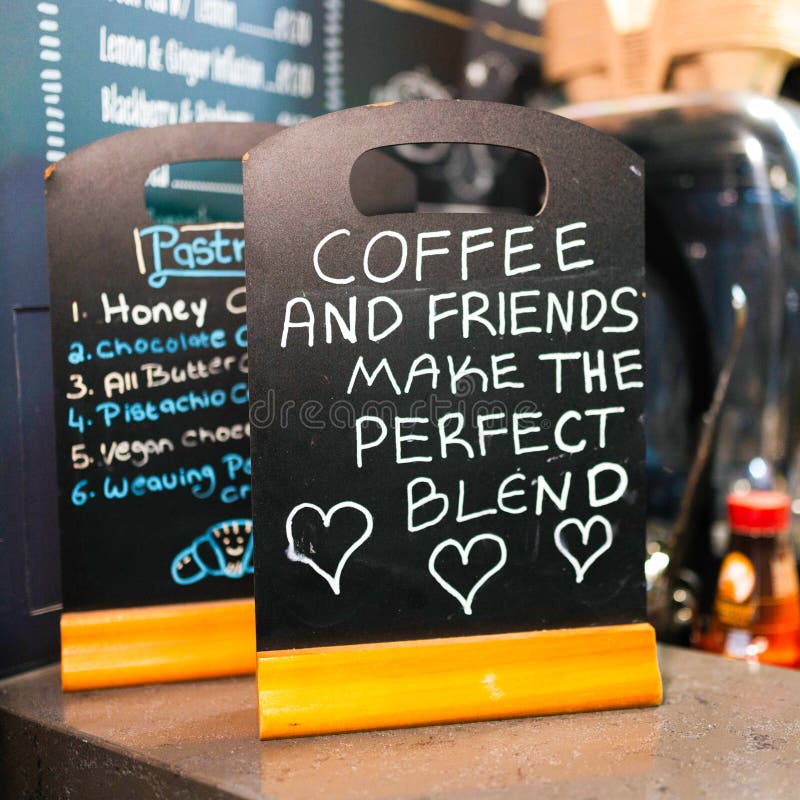 Lemon & Ginger
Blackberry &
Pastr
1. Honey C
2. Chocolate C
3. All Butter C
4. Pistachio C
5. Vegan choc
6. Weaving Pe
cr
COFFEE
AND FRIENDS
MAKE THE
PERFECT
BLEND
dreamstime